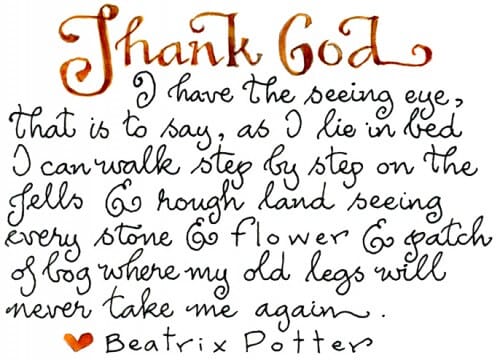 Thank God
I have the seeing eye,
that is to say, as I lie in bed
I can walk step by step on the
fells & rough land seeing
every stone & flower & patch
of bog where my old legs will
never take me again.
Beatrix Potter